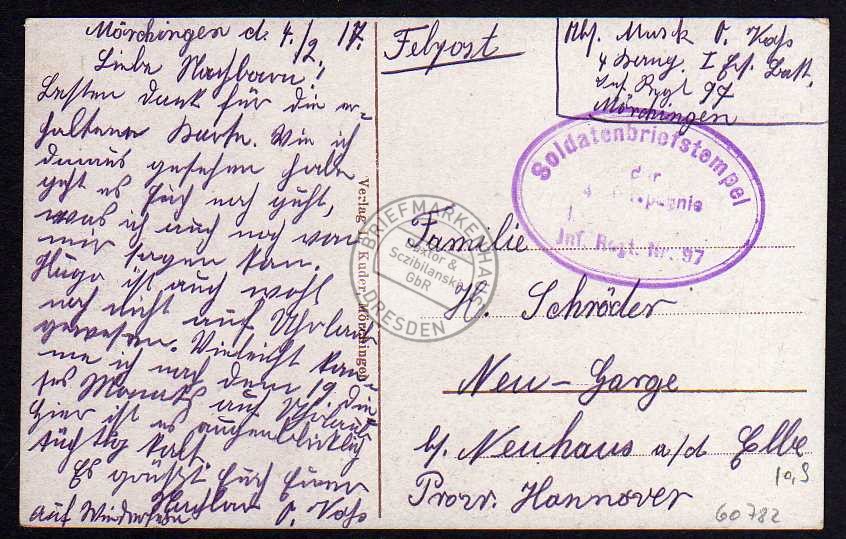 Mörchingen d. 4./2. 17.
Liebe Nachbarn!
Besten Dank für die er-
haltene Karte. Wie ich
daraus gesehen habe
geht es Euch noch guht,
was ich auch noch von
mir sagen kan.
Hugo ist auch wohl
noch nicht auf Uhrlaub
gewesen. Vieleicht kan
me ich nach dem 19. die
ses Monats auf Uhrlaub
Hier ist es augenblicklich
tüchtig kalt.
Es grüßt Euch Euer
Nachbar
auf Wiedersehn O. Kohs
Verlag L. Kuder, Mörchingen
Feldpost
Abs. Musk O. Kohs
4 I Ers. Batt.
Inf. Regt 97
Mörchingen
Soldatenbriefstempel
der
4
Inf. Regt. Nr. 97
BRIEFMARKENHAUS
Sextor &
Sczibilanski
GbR
DRESDEN
Familie
H. Schröder
Neu-Garge
b/. Neuhaus a/d Elbe
Prov. Hannover
10,S
60782